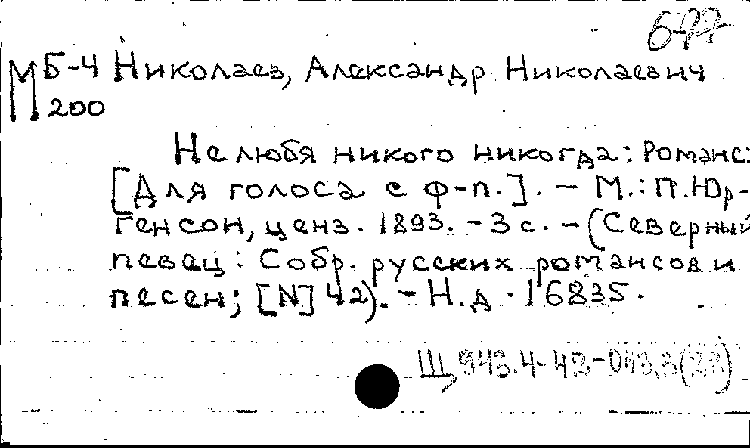 Б-77
М Б-4 Николаев, Александр Николаевич
200
Не любя никого никогда: Романс:
[Для голоса с ф-п.]. – М.: П. Юр-
генсон, ценз. 1893. – 3 с. – (Северный
певец: Собр. русских романсов и
песен; [N] 42). – Н.д. 16835.
Щ 943.4-48-